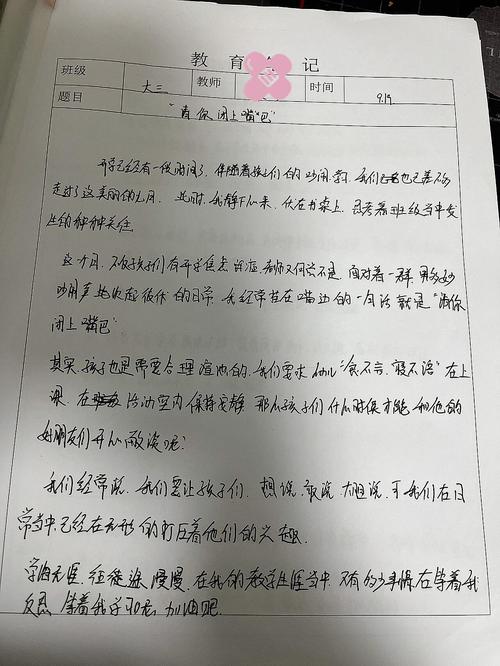 教 育 记
班级 大三 教师 时间 9.19
题目 "请你闭上嘴巴"
开学已经有一段时间了,伴随着孩子们的吵闹声,我们也已差不多
走过了这美丽的九月。此时,我静下心来,伏在书桌上,思考着班级当中发
生的种种关系
这个月,不仅孩子们有开学焦虑,老师又何尝不是,面对着一群
吵闹声此伏起彼伏的日常,我经常挂在嘴边的一句话就是"请你
闭上嘴巴"
其实,孩子也是需要合理宣泄的,我们要求他们"食不言,寝不语"在上
课,在活动室内保持安静,那么孩子们什么时候才能和他的
好朋友们开心敞谈呢?
我们经常说,我们要让孩子们,想说,敢说,大胆说,可我们在日
常当中已经在无形的打压着他们的兴趣.
学海无涯,征途漫漫,在我的教学生涯当中,不有的多事情在等着我
反思,等着我学习 加油吧.